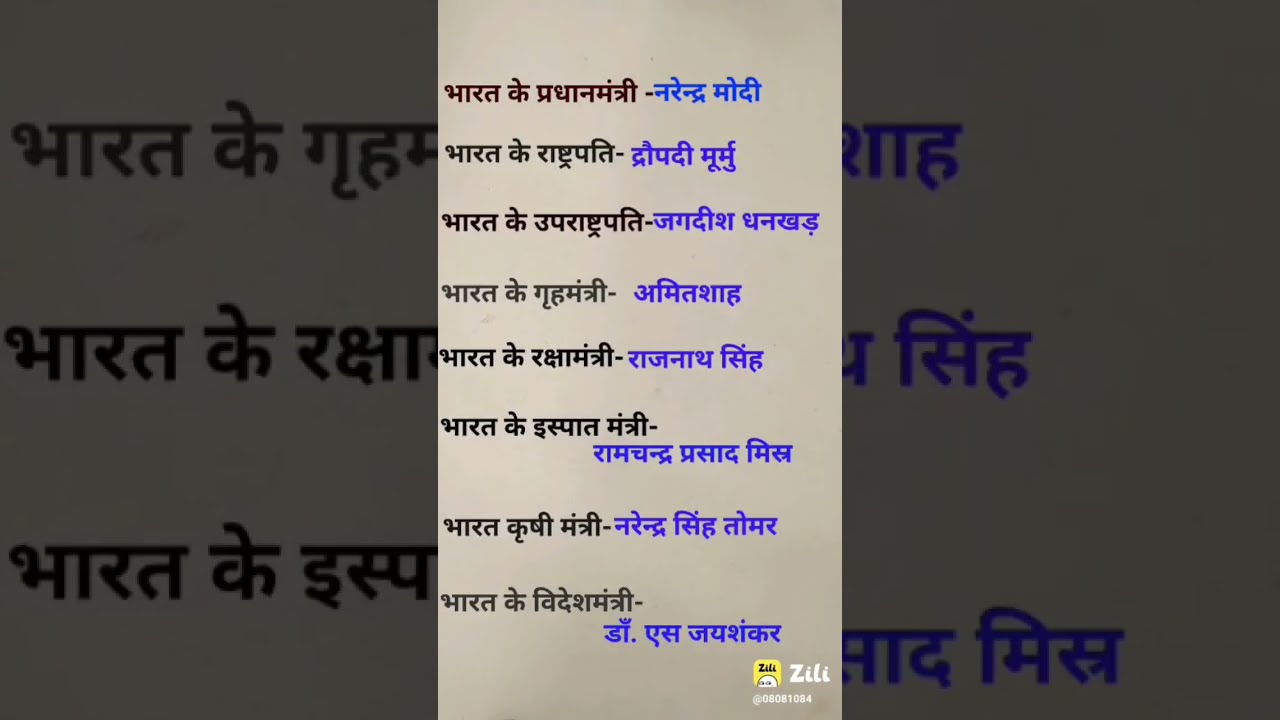 भारत के प्रधानमंत्री -नरेन्द्र मोदी
भारत के राष्ट्रपति- द्रौपदी मूर्मु
भारत के उपराष्ट्रपति-जगदीश धनखड़
भारत के गृहमंत्री- अमितशाह
भारत के रक्षामंत्री- राजनाथ सिंह
भारत के इस्पात मंत्री-
रामचन्द्र प्रसाद मिस्र
भारत कृषी मंत्री-नरेन्द्र सिंह तोमर
भारत के विदेशमंत्री-
डाँ. एस जयशंकर
Zili Zili
@08081084